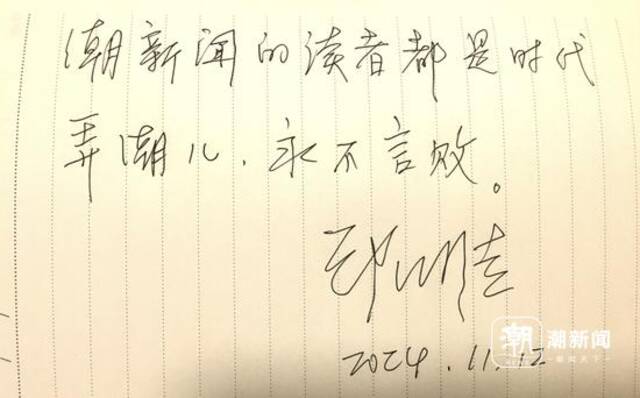 潮新闻的读者都是时代
弄潮儿、永不言败。
2024.11.12
潮 潮新闻